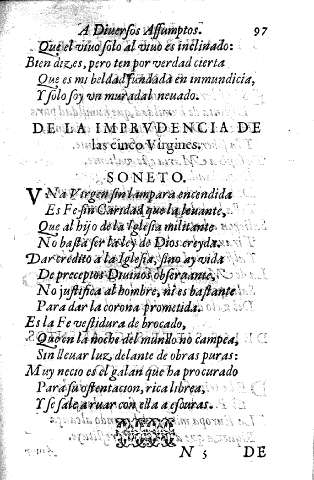 A Diversos Assumptos. 97
Que el vivo solo al vivo es inclinado:
Bien dizes, pero ten por verdad cierta
Que es mi beldad fundada en inmundicia,
Y solo soy vn muradal nevado.
DE LA IMPRVDENCIA DE
las cinco Virgines.
SONETO.
VNa Virgen sin lampara encendida
Es Fe sin Caridad que la levante,
Que al hijo de la Iglesia militante
No basta ser la ley de Dios creyda.
Dar credito a la Iglesia, sino ay vida
De preceptos Divinos observante,
No justifica al hombre, ni es bastante
Para dar la corona prometida.
Es la Fe vestidura de brocado,
Que en la noche del mundo no campea,
Sin lleuar luz, delante de obras puras:
Muy necio es el galan que ha procurado
Para su ostentacion, rica librea,
Y se sale a ruar con ella a escuras.
N 5 DE